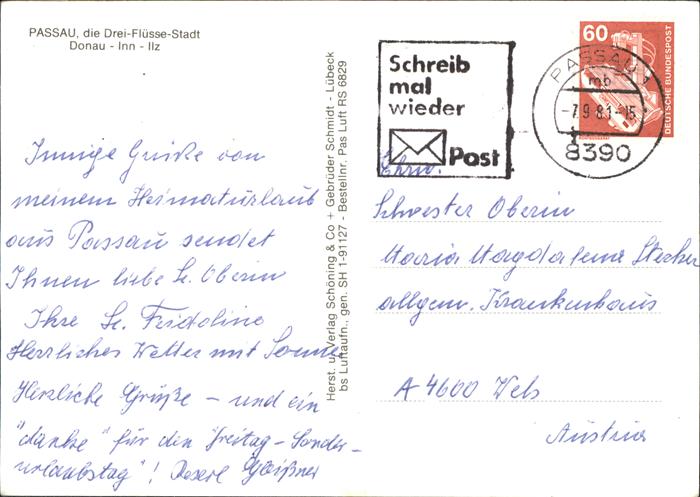 PASSAU, die Drei-Flüsse-Stadt
Donau - Inn - Ilz
Innige Grüße von
meinem Heimaturlaub
aus Passau sendet
Ihnen liebe Sr. Oberin
Ihre Sr. Fridoline
Herrliches Wetter mit Sonne
Herzliche Grüße - und ein
"danke" für den Freitag-Sonder-
urlaubstag"!
Herst. u. Verlag Schöning & Co + Gebrüder Schmidt - Lübeck
bs Luftaufn., gen. SH 1-91127 - Bestellnr. Pas Luft RS 6829
Schreib
mal
wieder
Post
PASSAU 1
mb
-7.9.81-15
8390
60
DEUTSCHE BUNDESPOST
Ehrw.
Schwester Oberin
Maria Magdalena
allgem. Krankenhaus
A 4600 Wels
Austria